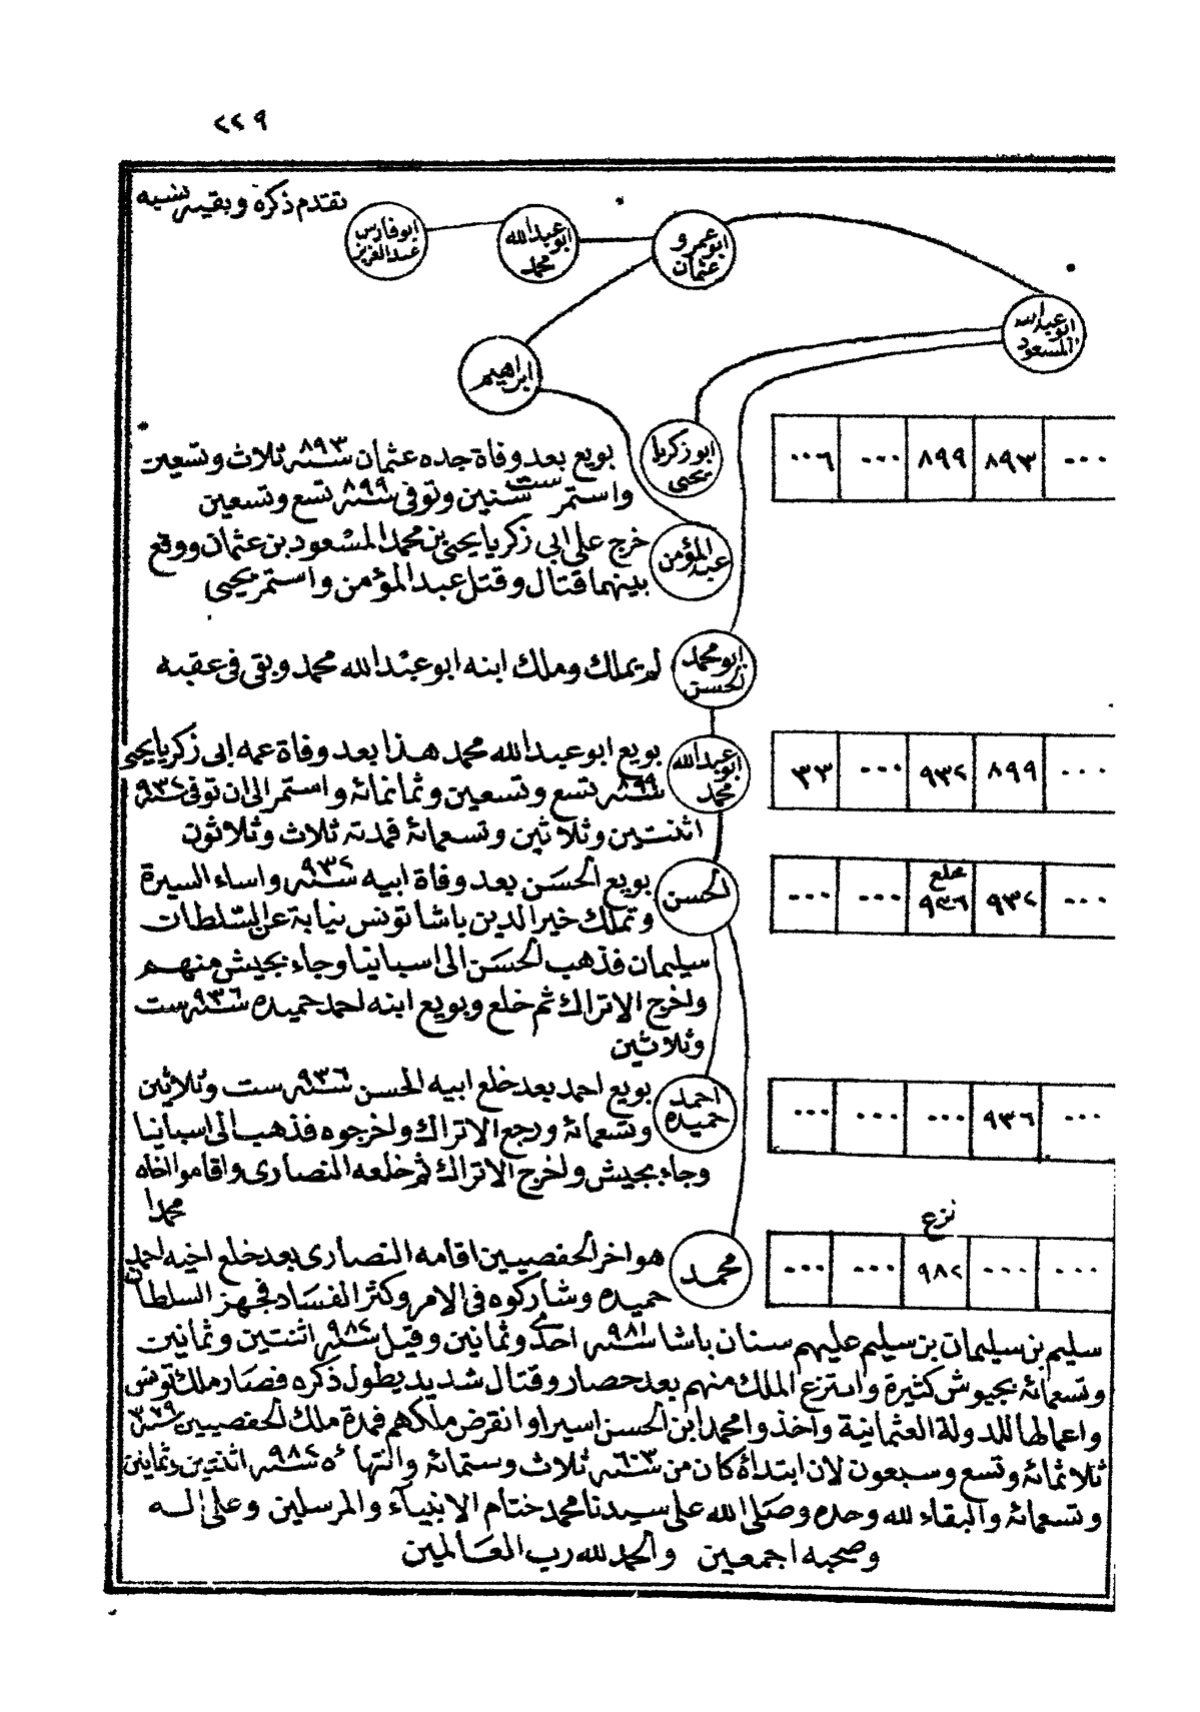 ٢٢٩
تقدم ذكره وبقية نسبه
ابو فارس عبد العزيز
ابو عبد الله محمد
ابو عمرو عثمان
ابو عبد الله المسعود
ابراهيم
ابو زكريا يحيى
بويع بعد وفاة جده عثمان سنة ٨٩٣ ثلاث وتسعين
واستمر ست سنين وتوفى سنة ٨٩٩ تسع وتسعين
٠٠٠ ٨٩٣ ٨٩٩ ٠٠٠ ٠٠٦
عبد المؤمن
خرج على ابى زكريا يحيى بن محمد المسعود بن عثمان ووقع
بينهما قتال وقتل عبد المؤمن واستمر يحيى
ابو محمد الحسن
لم يملك وملك ابنه ابو عبد الله محمد وبقى فى عقبه
ابو عبد الله محمد
بويع ابو عبد الله محمد هذا بعد وفاة عمه ابى زكريا يحيى
سنة ٨٩٩ تسع وتسعين وثمانمائة واستمر الى ان توفى سنة ٩٣٢
اثنتين وثلاثين وتسعمائة فمدته ثلاث وثلاثون
٠٠٠ ٨٩٩ ٩٣٢ ٠٠٠ ٣٣
الحسن
بويع الحسن بعد وفاة ابيه سنة ٩٣٢ واساء السيرة
وتملك خير الدين باشا تونس نيابة عن السلطان
سيليمان فذهب الحسن الى اسبانيا وجاء بجيش منهم
واخرج الاتراك ثم خلع وبويع ابنه احمد حميده سنة ٩٣٦ ست
وثلاثين
٠٠٠ ٩٣٢ خلع ٩٣٦ ٠٠٠ ٠٠٠
احمد حميده
بويع احمد بعد خلع ابيه الحسن سنة ٩٣٦ ست وثلاثين
وتسعمائة ورجع الاتراك واخرجوه فذهب الى اسبانيا
وجاء بجيش واخرج الاتراك ثم خلعه النصارى واقاموا اخاه
محمدا
٠٠٠ ٩٣٦ ٠٠٠ ٠٠٠ ٠٠٠
محمد
هو اخر الحفصيين اقامه النصارى بعد خلع اخيه احمد
حميده وشاركوه فى الامر وكثر الفساد فجهز السلطان
نزع
٠٠٠ ٠٠٠ ٩٨٢ ٠٠٠ ٠٠٠
سليم بن سيليمان بن سيليم عليهم سنان باشا سنة ٩٨١ احدى وثمانين وقيل سنة ٩٨٢ اثنتين وثمانين
وتسعمائة بجيوش كثيرة وانتزع الملك منهم بعد حصار وقتال شديد يطول ذكره فصار ملك تونس
واعمالها للدولة العثمانية واخذوا محمد ابن الحسن اسيرا وانقرض ملكهم فمدة ملك الحفصيين سنة ٣٧٩
ثلاثمائة وتسع وسبعون لان ابتدأه كان من سنة ٦٠٣ ثلاث وستمائة وانتهائه سنة ٩٨٢ اثنتين وثمانين
وتسعمائة والبقاء لله وحده وصلى الله على سيدنا محمد ختام الانبياء والمرسلين وعلى اله
وصحبه اجمعين والحمد لله رب العالمين